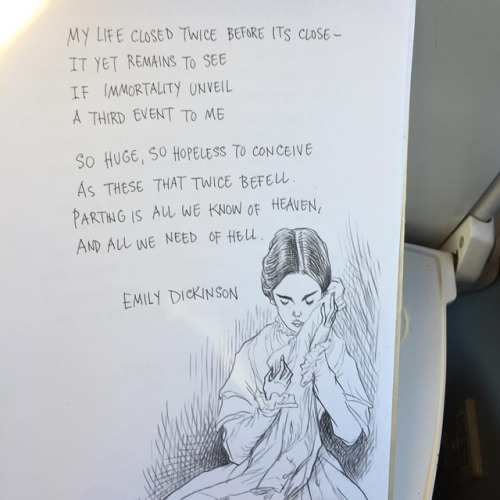 MY LIFE CLOSED TWICE BEFORE ITS CLOSE–
IT YET REMAINS TO SEE
IF IMMORTALITY UNVEIL
A THIRD EVENT TO ME
SO HUGE, SO HOPELESS TO CONCEIVE
AS THESE THAT TWICE BEFELL.
PARTING IS ALL WE KNOW OF HEAVEN,
AND ALL WE NEED OF HELL.
EMILY DICKINSON